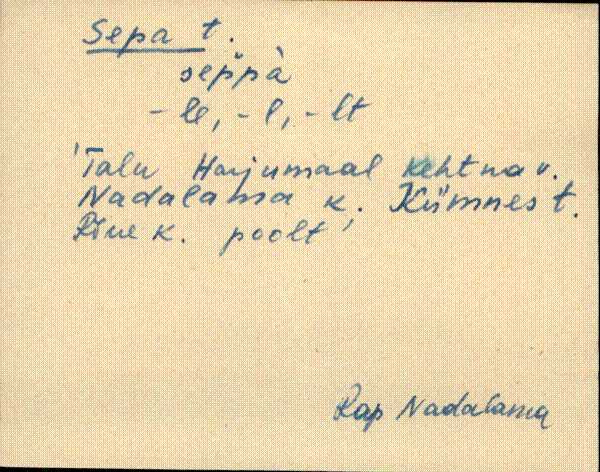 Sepa t.
sep̆pà
- le, - l, - lt
'Talu Harjumaal Kehtna v.
Nadalama k. Kümnes t.
k. poolt'
Rap Nadalama